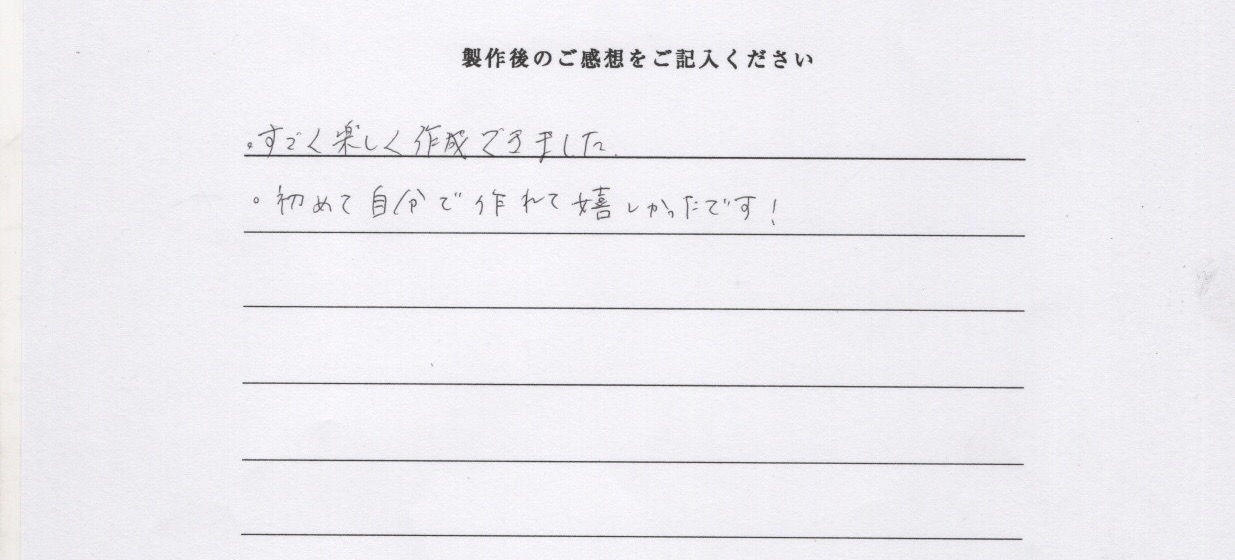 製作後のご感想をご記入ください
。すごく楽しく作成できました.
。初めて自分で作れて嬉しかったです!